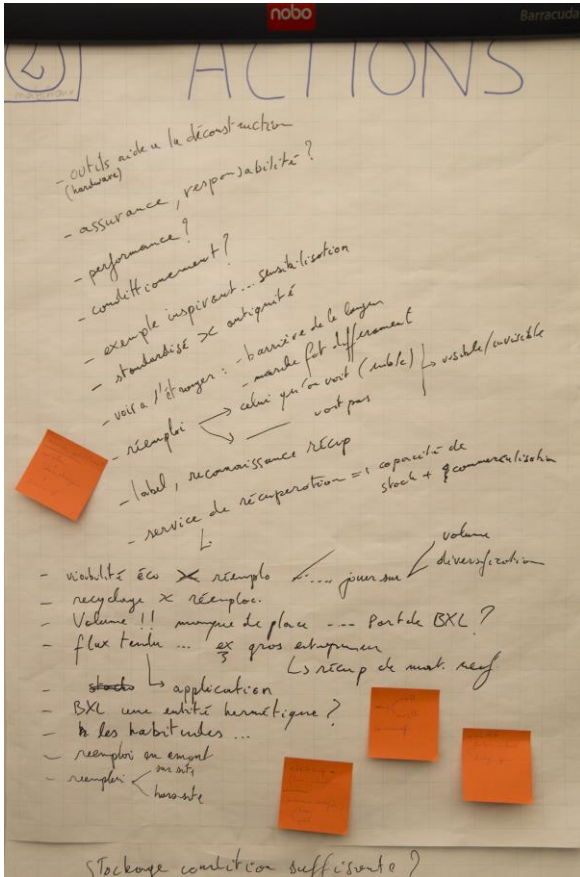 nobo
Barracuda
2
ACTIONS
- outils aide a la déconstruction
(hardware)
- assurance, responsabilité ?
- performance ?
- condittionement ?
- exemple inspirant ... sensibilisation
- standardisé >< antiquité
- voir a l'étranger : - barrière de la langue
- marche fot differament
- réemploi → celui qu'on voit (noble) → visible/invisible
→ —— voit pas
- label, reconnaissance récup
- service de récuperation = capacité de
stock + commercialisation
- viabilité éco >< réemploi ..... jouer sur volume
diversification
- recyclage >< réemploi.
- Volume !! manque de place --- Port de BXL ?
- flux tendu ... ex gros entrepreneur
↳ récup de mat. neuf
- stocks ↳ application
- BXL une entité hermétique ?
- les habitudes ...
- reemploi en amont
- reemploi < sur site
hors site
Stockage condition suffisante ?